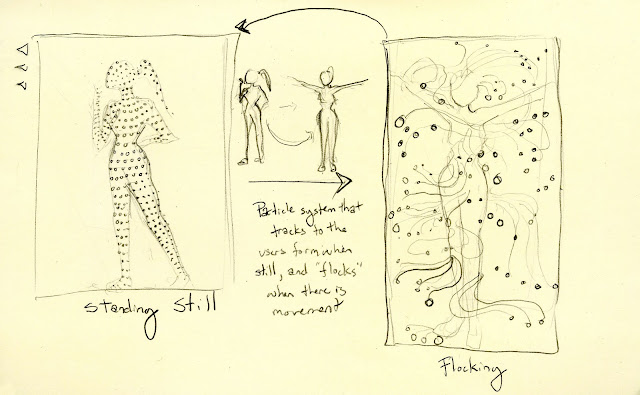 Standing Still
Particle system that
tracks to the
users form when
still, and "flocks"
when there is
movement
Flocking